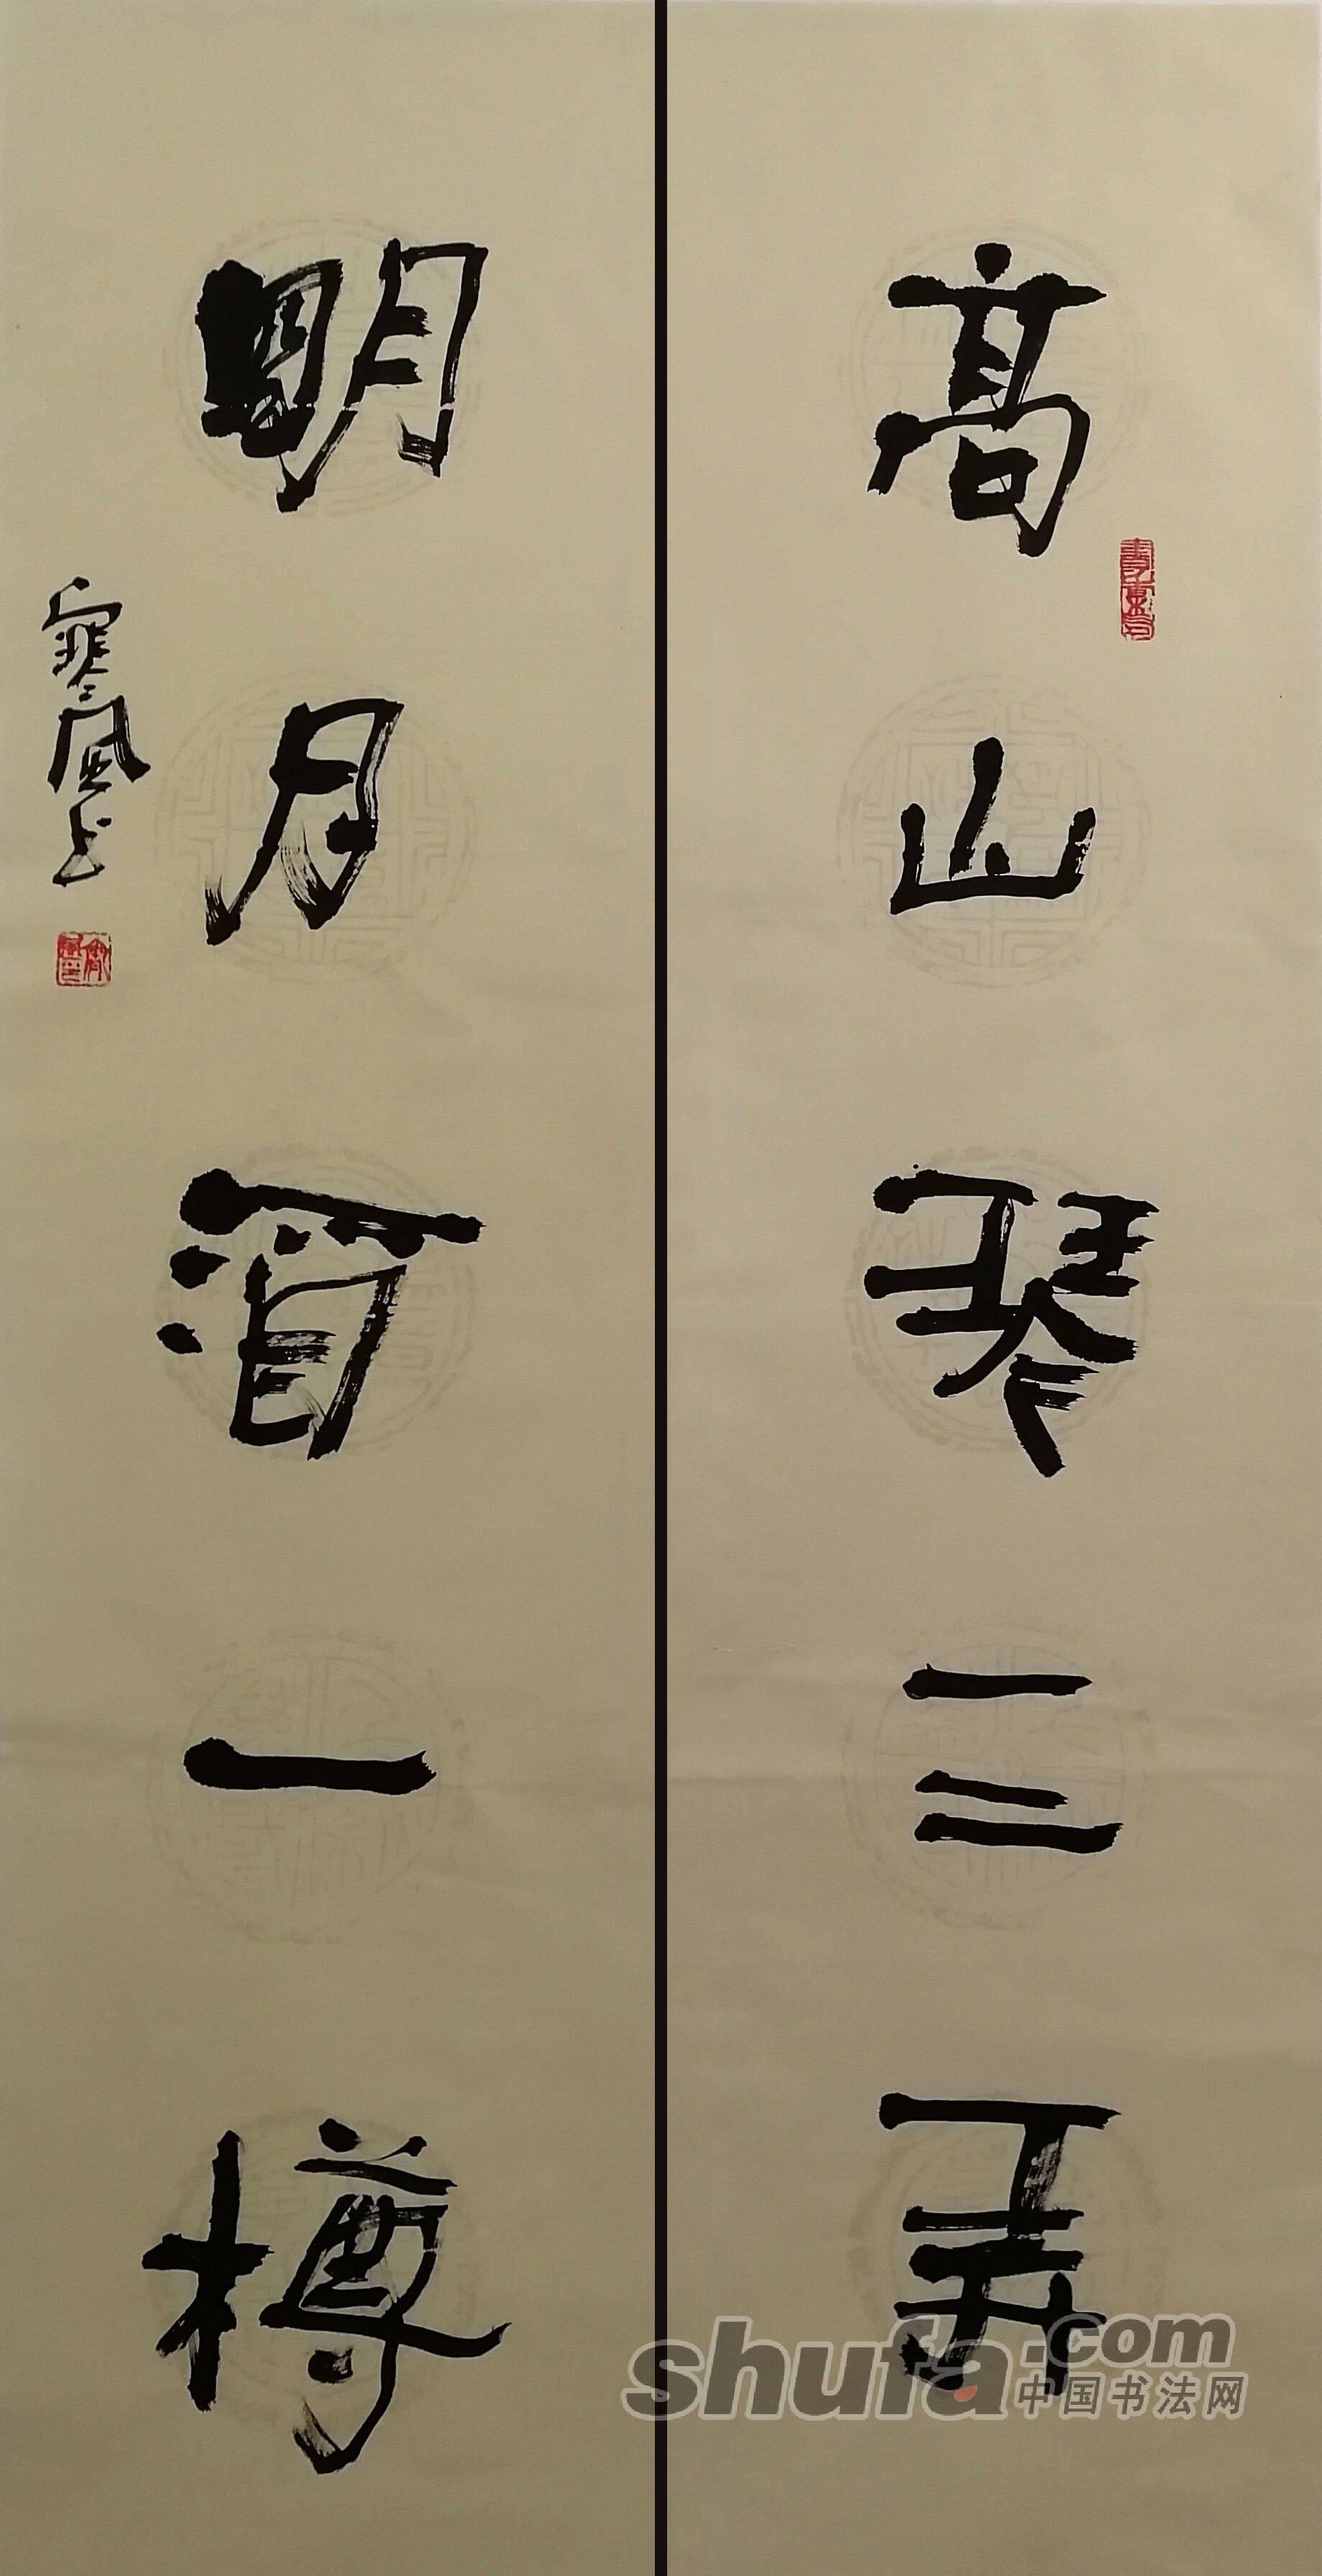 高山琴三弄
明月酒一樽
寒風书
shufa.com
中国书法网